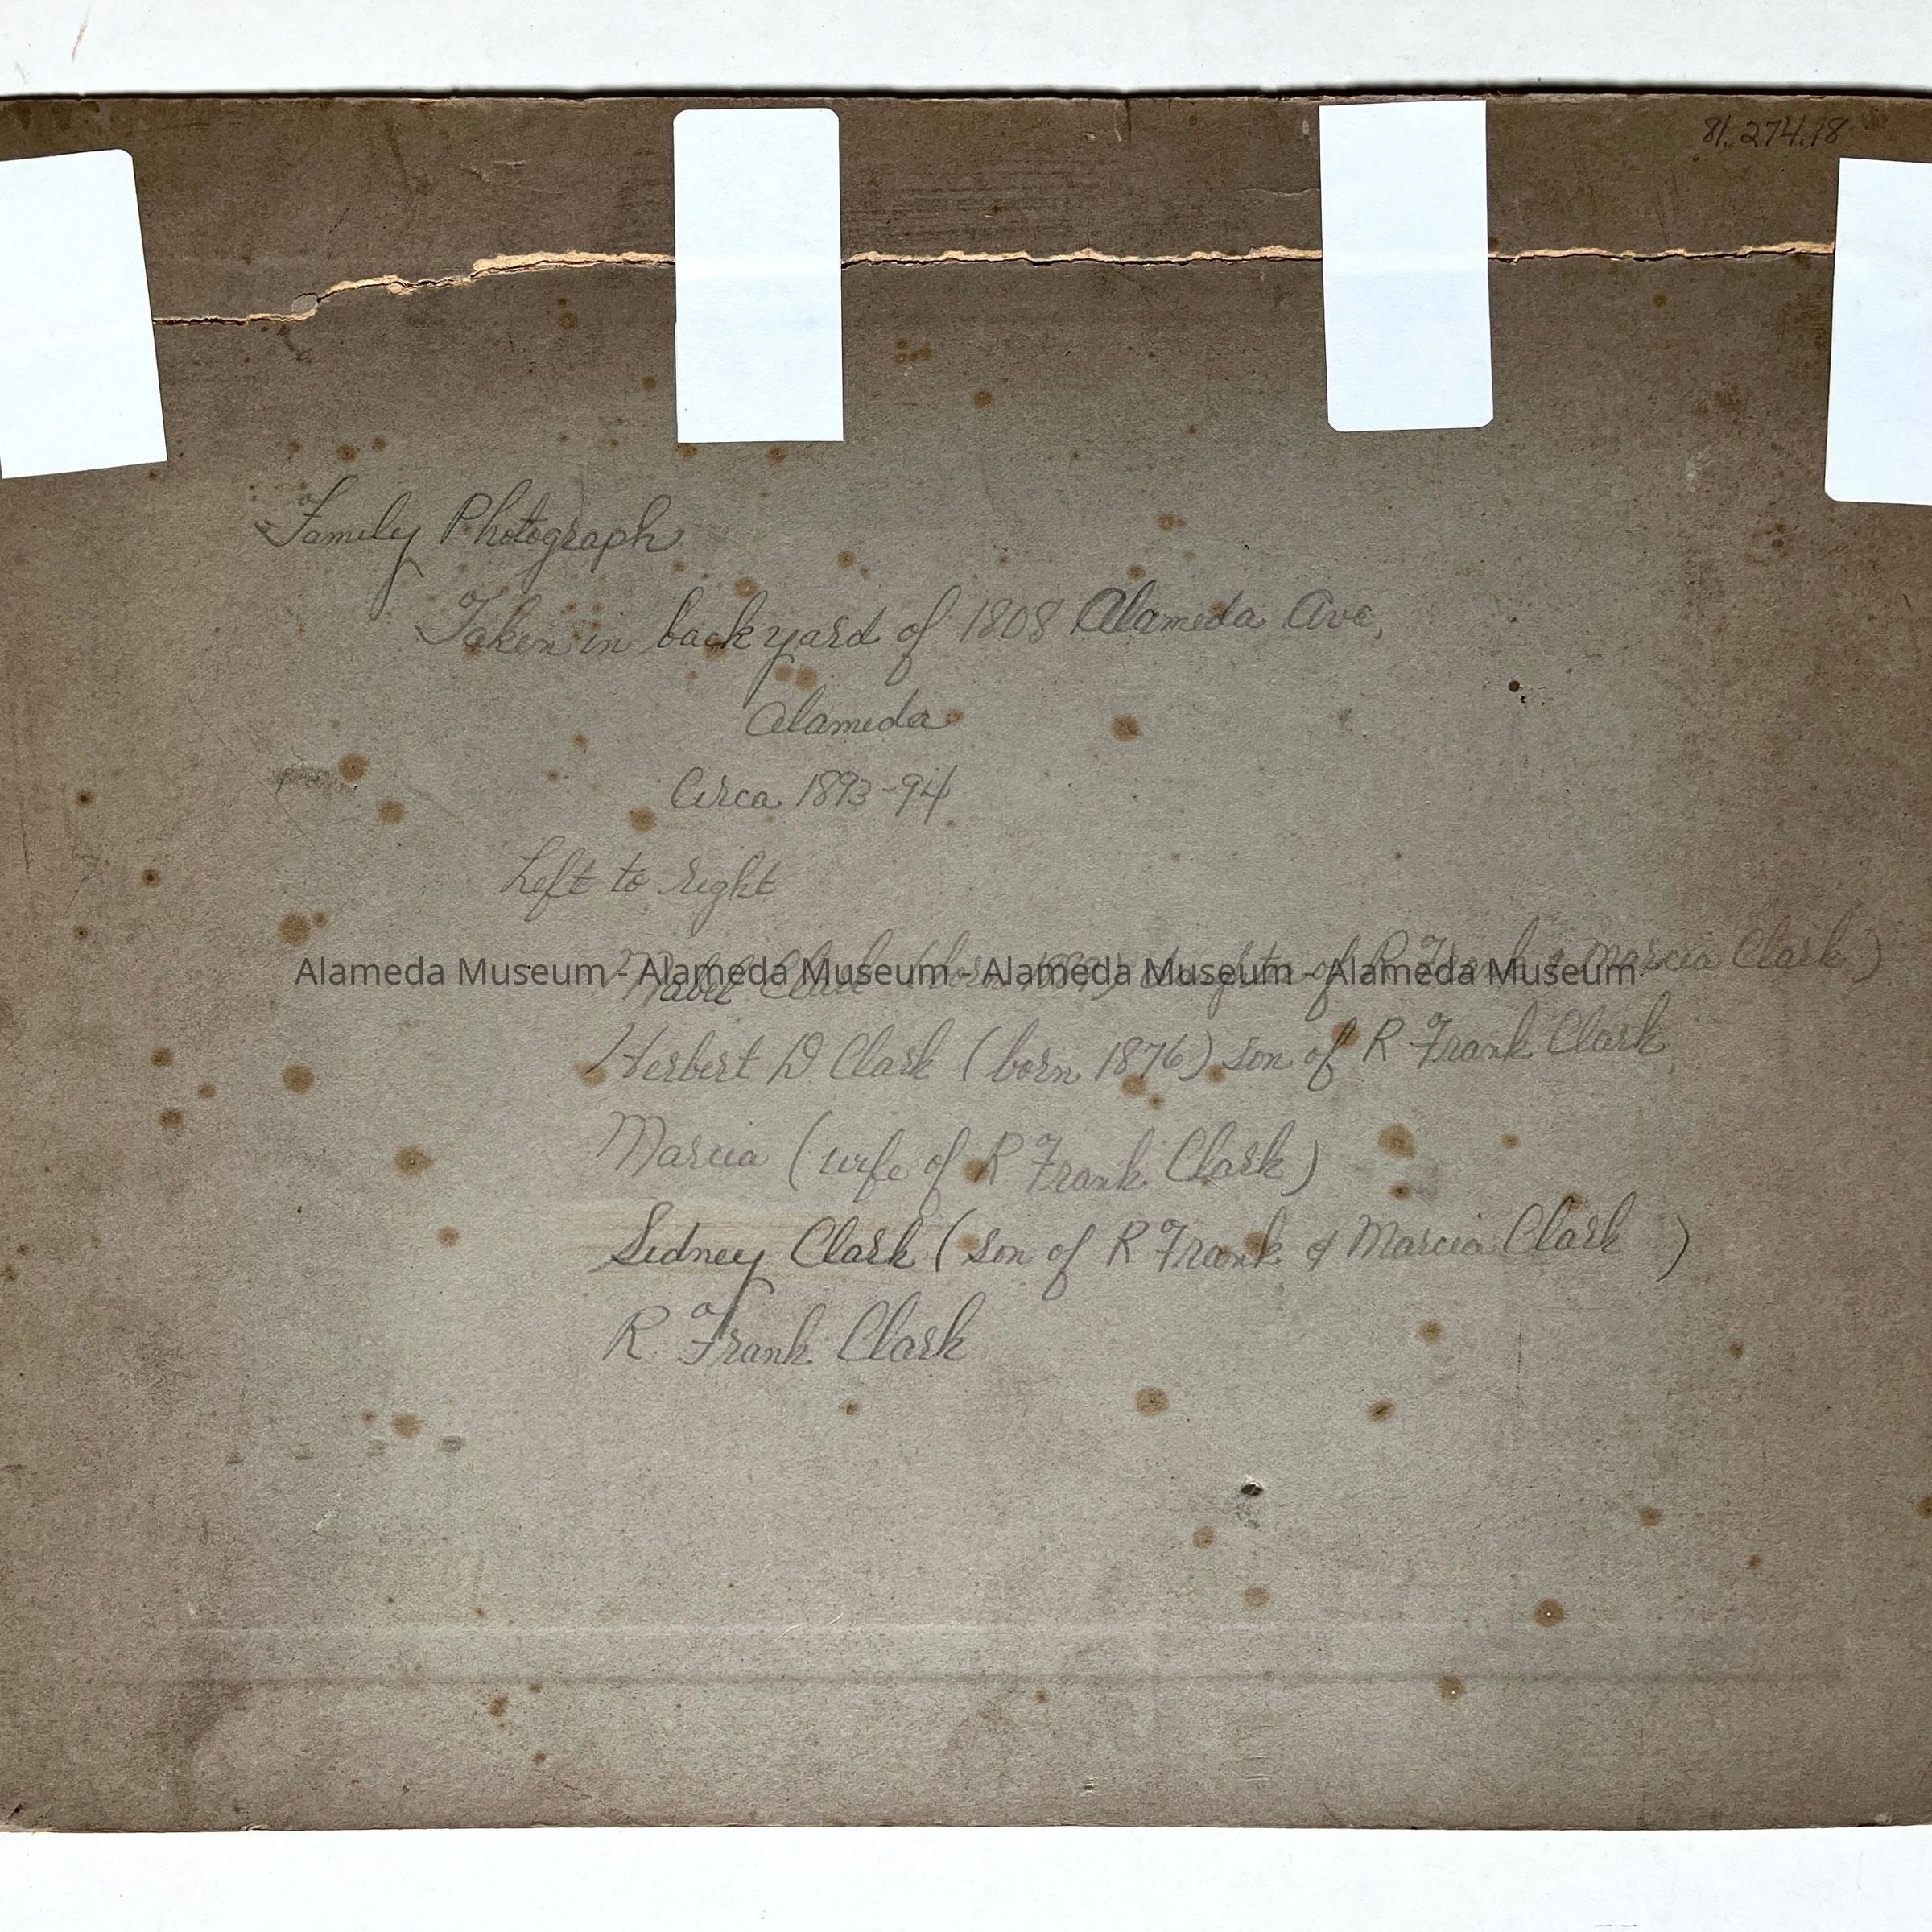 81.274.18
Family Photograph
Taken in back yard of 1808 Alameda Ave,
Alameda
Circa 1893-94
Left to right
Mabel Clark (born daughter of R Frank & Marcia Clark)
Alameda Museum - Alameda Museum - Alameda Museum - Alameda Museum
Herbert D. Clark (born 1876) son of R Frank Clark
Marcia (wife of R Frank Clark)
Sidney Clark (son of R Frank & Marcia Clark )
R. Frank Clark